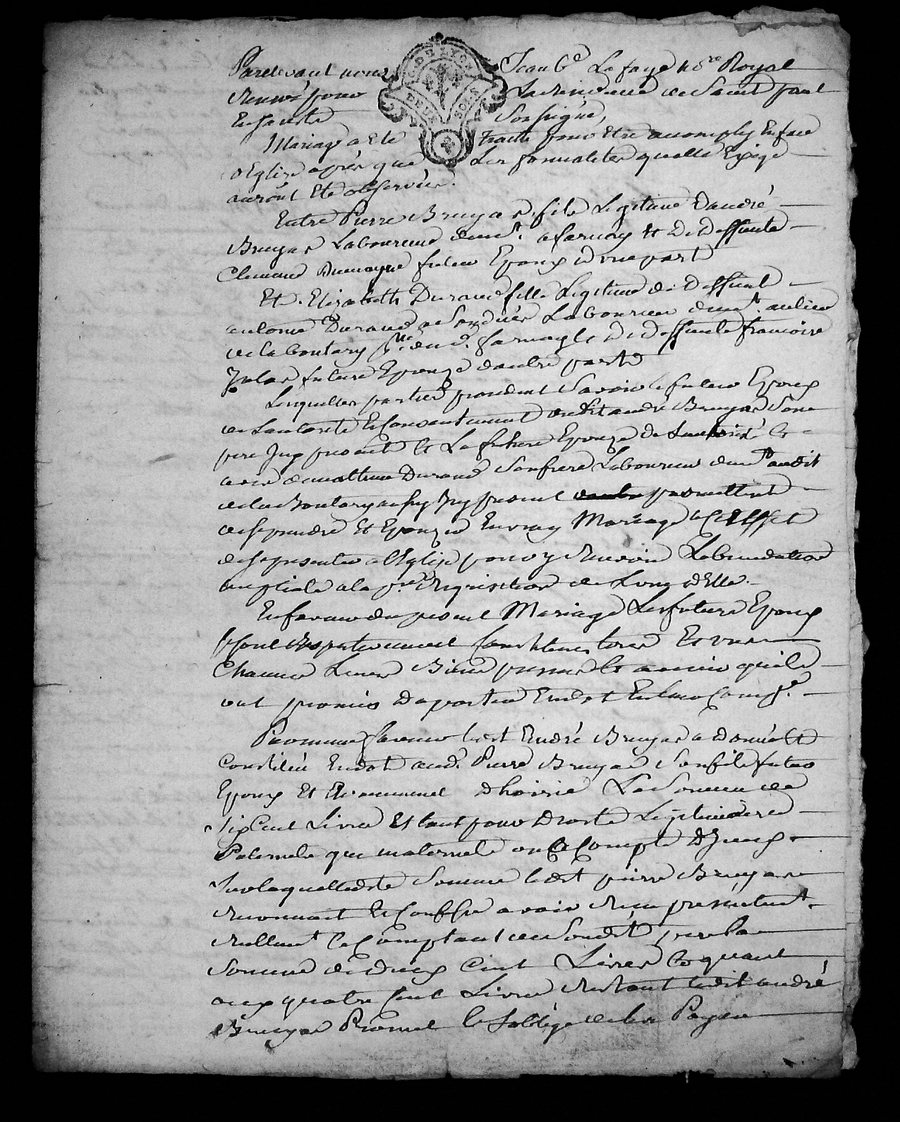 Pardevant nous Jean Bte Lafaye Nre Royal
Reservé pour La Residence de Saint paul
En Jarest Soussigné,
Mariage a Eté traitté pour Etre accomply En face
d'Eglise apres que Les formalites quelle Exige
auront Eté observées.
Entre Pierre Bruyas fils Legitime D'andré
Bruyas Laboureur demt. a farnay Et De deffunte
Clemence futur Epoux d'une part
Et Elizabeth Durand fille Legitime de deffunt
antoine Durand Laboureur demt. au lieu
de la Bontary psse. dud. farnay Et De deffunte françoise
future Epouze d'autre part
Lesquelles parties procedant Savoir le futur Epoux
de Lautorité Et Consentement dudit andré Bruyas Son
pere Icy present Et La future Epouze de
avis de mathieu Durand Son frere Laboureur demt. audit
de la Bontary aussy Icy present promettent
de se prendre Et Epouzer En vray Mariage a C'Effet
de se presenter a l'Eglise pour y Recevoir La benediction
nuptiale a la pre. Requisition de Lung d'Elle.
En faveur du present Mariage Les futurs Epoux
Se sont Respectivement Constitues tous Et un
Chacun Leurs Biens presents Et a venir quils
ont promis D'aporter En dot Et En leur Compe.
Pa mesme faveur ledit André Bruyas a Donné Et
Constitué En dot aud. Pierre Bruyas Son fils futur
Epoux Et En avancement D'hoirie La Somme de
Six Cent Livres Et tant pour Droits Legitimaires
Paternels que maternels
Sur laquelle ditte Somme ledit pierre Bruyas
Reconnait Et Confesse avoir Reçu presentemt.
Reellemt. Et Comptant de Sondit pere La
Somme de deux Cent Livres Et quant
aux quatre Cent Livres Restant ledit andré
Bruyas Promet Et S'oblige de les Payer